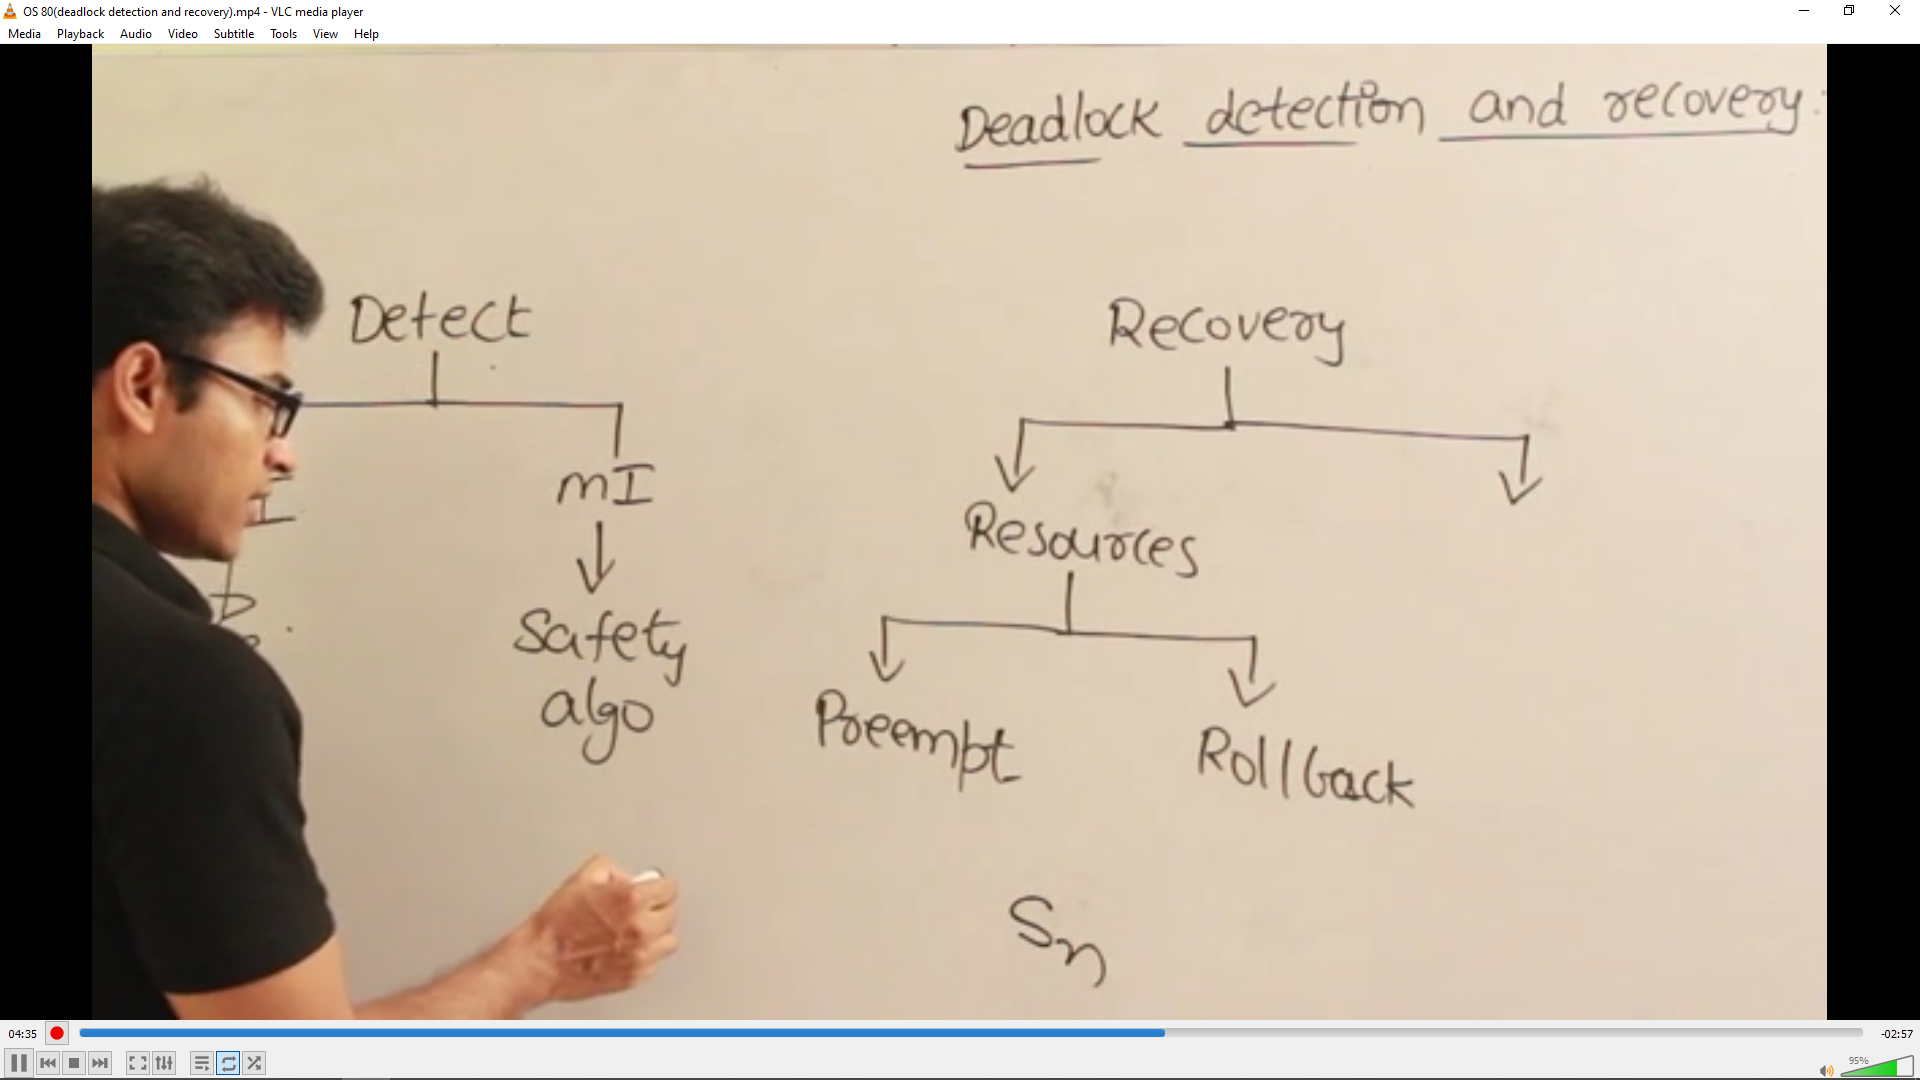 OS 80(deadlock detection and recovery).mp4 - VLC media player
Media Playback Audio Video Subtitle Tools View Help
Deadlock detection and recovery:
Detect
Recovery
I
mI
Resources
Safety
algo
Preempt
Rollback
Sn
04:35
-02:57
95%